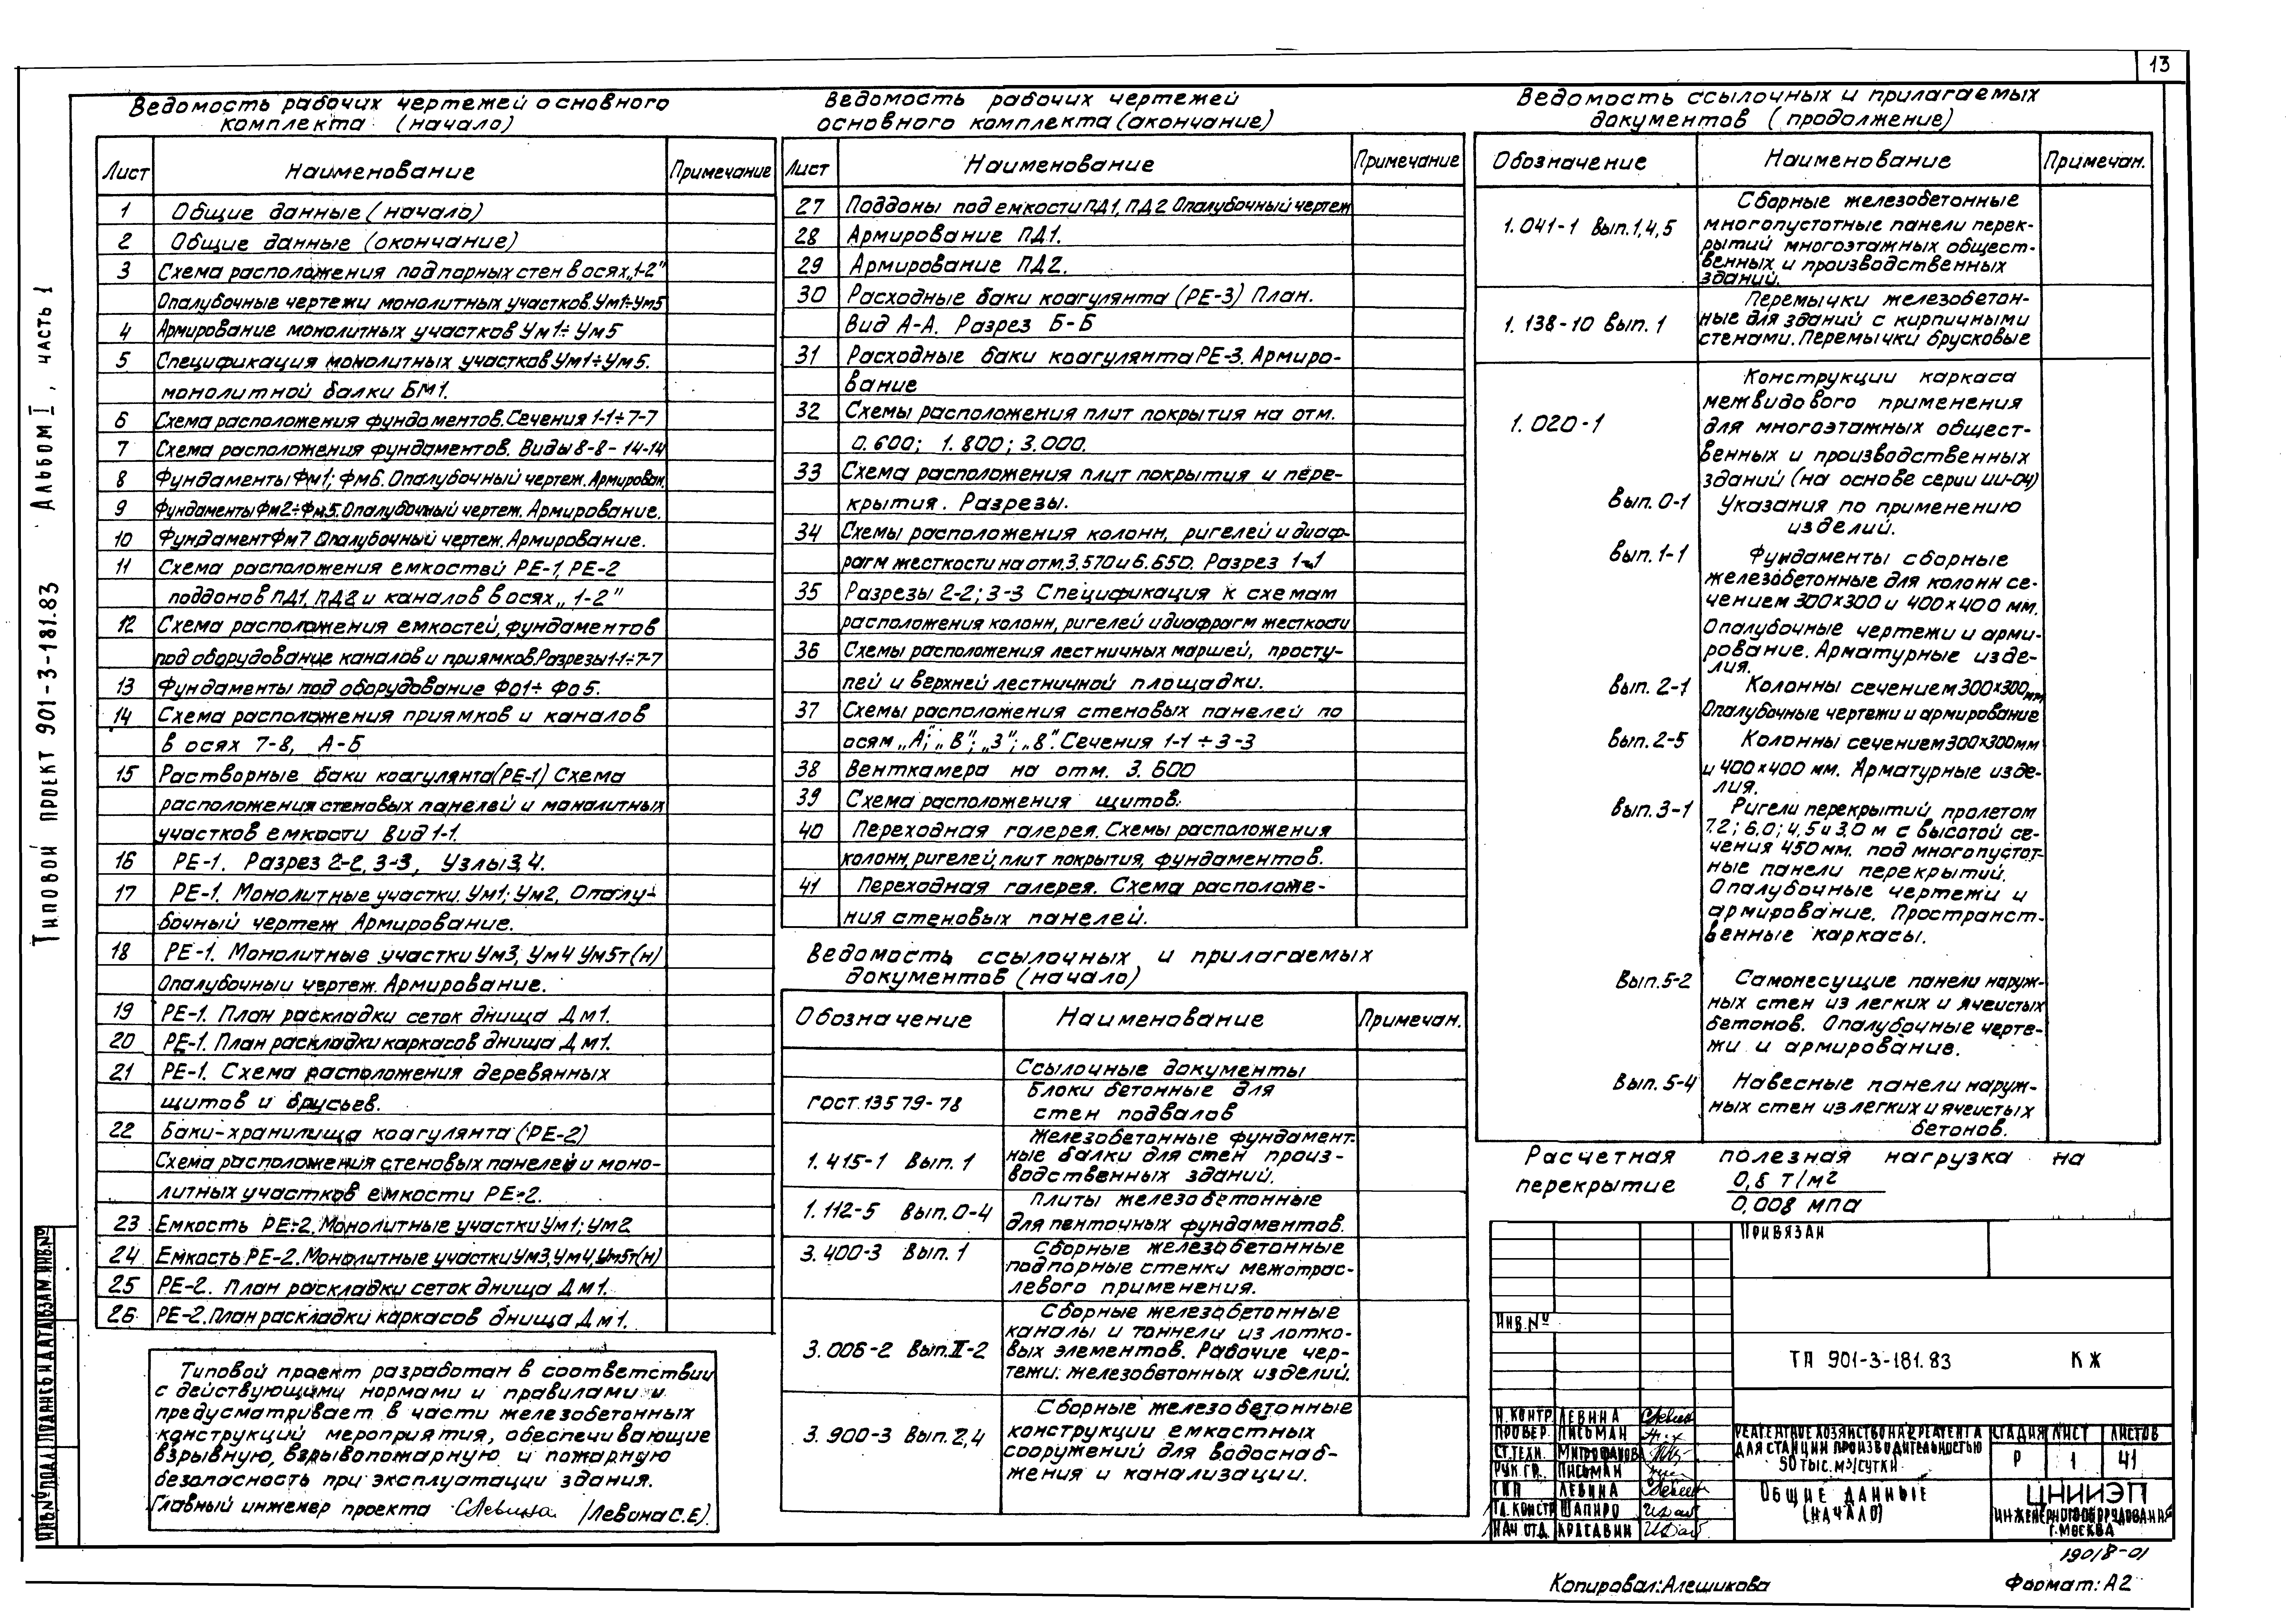 13
Типовой проект 901-3-181.83 Альбом I, часть 1
Ведомость рабочих чертежей основного
комплекта (начало)
Лист Наименование Примечание
1 Общие данные (начало)
2 Общие данные (окончание)
3 Схема расположения подпорных стен в осях „1-2"
Опалубочные чертежи монолитных участков Ум1÷Ум5
4 Армирование монолитных участков Ум1÷Ум5
5 Спецификация монолитных участков Ум1÷Ум5.
монолитной балки БМ1.
6 Схема расположения фундаментов. Сечения 1-1÷7-7
7 Схема расположения фундаментов. Виды 8-8-14-14
8 Фундаменты Фм1; Фм6. Опалубочный чертеж. Армирован.
9 Фундаменты Фм2÷Фм5. Опалубочный чертеж. Армирование.
10 Фундамент Фм7 Опалубочный чертеж. Армирование.
11 Схема расположения емкостей РЕ-1, РЕ-2
поддонов ПД1, ПД2 и каналов в осях „1-2"
12 Схема расположения емкостей, фундаментов
под оборудование каналов и приямков. Разрезы 1-1÷7-7
13 Фундаменты под оборудование Фо1÷Фо5.
14 Схема расположения приямков и каналов
в осях 7-8, А-Б
15 Растворные баки коагулянта (РЕ-1) Схема
расположения стеновых панелей и монолитных
участков емкости Вид 1-1.
16 РЕ-1. Разрез 2-2, 3-3, Узлы 3,4.
17 РЕ-1. Монолитные участки. Ум1; Ум2, Опалу-
бочный чертеж Армирование.
18 РЕ-1. Монолитные участки Ум3, Ум4 Ум5т(н)
Опалубочный чертеж. Армирование.
19 РЕ-1. План раскладки сеток днища Дм1.
20 РЕ-1. План раскладки каркасов днища Дм1.
21 РЕ-1. Схема расположения деревянных
щитов и брусьев.
22 Баки-хранилища коагулянта (РЕ-2)
Схема расположения стеновых панелей и моно-
литных участков емкости РЕ-2.
23 Емкость РЕ-2. Монолитные участки Ум1; Ум2
24 Емкость РЕ-2. Монолитные участки Ум3, Ум4, Ум5т(н)
25 РЕ-2. План раскладки сеток днища Дм1.
26 РЕ-2. План раскладки каркасов днища Дм1.
Типовой проект разработан в соответствии
с действующими нормами и правилами и
предусматривает в части железобетонных
конструкций мероприятия, обеспечивающие
взрывную, взрывопожарную и пожарную
безопасность при эксплуатации здания.
Главный инженер проекта СЛевина /Левина С.Е/.
Ведомость рабочих чертежей
основного комплекта (окончание)
Лист Наименование Примечание
27 Поддоны под емкости ПД1, ПД2 Опалубочный чертеж
28 Армирование ПД1.
29 Армирование ПД2.
30 Расходные баки коагулянта (РЕ-3) План.
Вид А-А. Разрез Б-Б
31 Расходные баки коагулянта РЕ-3. Армиро-
вание
32 Схемы расположения плит покрытия на отм.
0.600; 1.800; 3.000.
33 Схема расположения плит покрытия и пере-
крытия. Разрезы.
34 Схемы расположения колонн, ригелей и диаф-
рагм жесткости на отм. 3.570 и 6.650. Разрез 1-1
35 Разрезы 2-2; 3-3 Спецификация к схемам
расположения колонн, ригелей и диафрагм жесткости
36 Схемы расположения лестничных маршей, просту-
пей и верхней лестничной площадки.
37 Схемы расположения стеновых панелей по
осям „А"; „В"; „3"; „8". Сечения 1-1÷3-3
38 Венткамера на отм. 3.600
39 Схема расположения щитов.
40 Переходная галерея. Схемы расположения
колонн, ригелей, плит покрытия, фундаментов.
41 Переходная галерея. Схема расположе-
ния стеновых панелей.
Ведомость ссылочных и прилагаемых
документов (начало)
Обозначение Наименование Примечан.
Ссылочные документы
ГОСТ. 13579-78 Блоки бетонные для
стен подвалов
1.415-1 Вып. 1 Железобетонные фундамент-
ные балки для стен произ-
водственных зданий.
1.112-5 Вып. 0-4 Плиты железобетонные
для ленточных фундаментов.
3.400-3 Вып. 1 Сборные железобетонные
подпорные стенки межотрас-
левого применения.
3.006-2 Вып. II-2 Сборные железобетонные
каналы и тоннели из лотко-
вых элементов. Рабочие чер-
тежи. железобетонных изделий.
3.900-3 Вып. 2,4 Сборные железобетонные
конструкции емкостных
сооружений для водоснаб-
жения и канализации.
Ведомость ссылочных и прилагаемых
документов (продолжение)
Обозначение Наименование Примечан.
1.041-1 Вып. 1,4,5 Сборные железобетонные
многопустотные панели перек-
рытий многоэтажных общест-
венных и производственных
зданий.
1.138-10 Вып. 1 Перемычки железобетон-
ные для зданий с кирпичными
стенами. Перемычки брусковые
1.020-1 Конструкции каркаса
межвидового применения
для многоэтажных общест-
венных и производственных
зданий (на основе серии ИИ-04)
Вып. 0-1 Указания по применению
изделий.
Вып. 1-1 Фундаменты сборные
железобетонные для колонн се-
чением 300х300 и 400х400 мм.
Опалубочные чертежи и арми-
рование. Арматурные изде-
лия.
Вып. 2-1 Колонны сечением 300х300 мм
Опалубочные чертежи и армирование
Вып. 2-5 Колонны сечением 300х300мм
и 400х400 мм. Арматурные изде-
лия.
Вып. 3-1 Ригели перекрытий пролетом
7.2; 6.0; 4,5 и 3,0 м с высотой се-
чения 450мм. под многопустот-
ные панели перекрытий.
Опалубочные чертежи и
армирование. Пространст-
венные каркасы.
Вып. 5-2 Самонесущие панели наруж-
ных стен из легких и ячеистых
бетонов. Опалубочные черте-
жи и армирование.
Вып. 5-4 Навесные панели наруж-
ных стен из легких и ячеистых
бетонов.
Расчетная полезная нагрузка на
перекрытие 0,8 т/м2
0,008 мпа
Привязан
Инв.№
ТП 901-3-181.83 КЖ
Н.контр. Левина
Провер. Письман
Ст.техн. Митрофанова
Рук.гр. Письман
ГИП Левина
Гл.констр Шапиро
Нач.отд. Красавин
Реагентное хозяйство на 2 реагента
для станции производительностью
50 тыс. м3/сутки
Стадия Лист Листов
Р 1 41
Общие данные
(начало)
ЦНИИЭП
инженерного оборудования
г.Москва
Инв.№ подл. Подпись и дата Взам.инв.№
19018-01
Копировал: Алешикова
Формат: А2